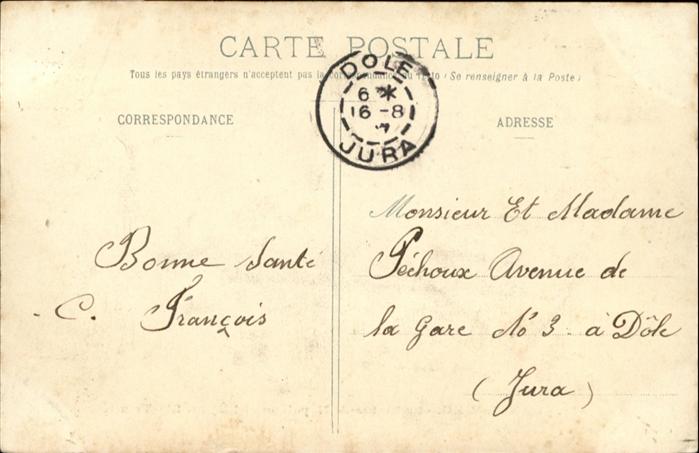 CARTE POSTALE
Tous les pays étrangers n'acceptent pas la correspondance au recto (Se renseigner à la Poste)
CORRESPONDANCE
ADRESSE
DOLE
6 *
16 - 8
JURA
Bonne Santé
C. François
Monsieur Et Madame
Péchoux Avenue de
la Gare No 3 à Dôle
(Jura)